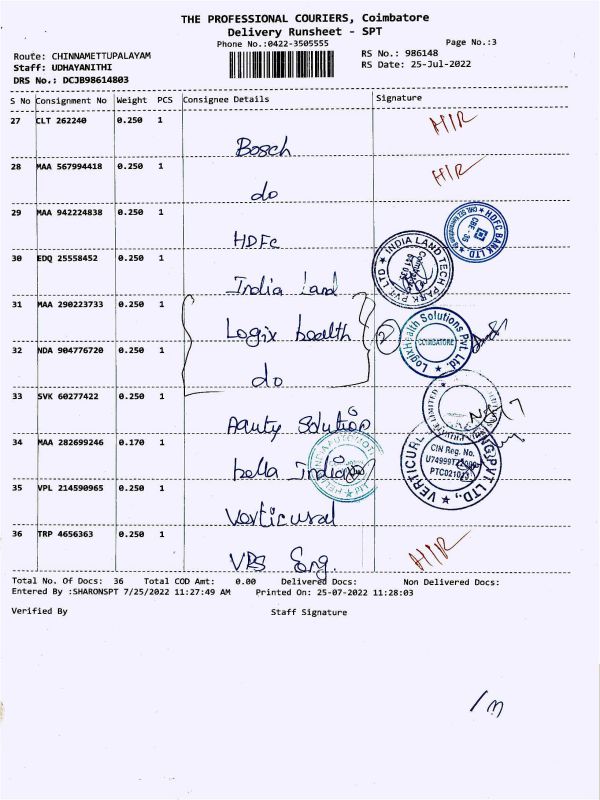 THE PROFESSIONAL COURIERS, Coimbatore
Delivery Runsheet - SPT
Phone No.:0422-3505555
Page No.:3
Route: CHINNAMETTUPALAYAM
RS No.: 986148
Staff: UDHAYANITHI
RS Date: 25-Jul-2022
DRS No.: DCJB98614803
S No Consignment No Weight PCS Consignee Details Signature
27 CLT 262240 0.250 1
HIR
Bosch
28 MAA 567994418 0.250 1
HIR
do
29 MAA 942224838 0.250 1
HDFC BANK LTD
CBE - 35
HDFC
30 EDQ 25558452 0.250 1
INDIA LAND TECH PARK PVT LTD
India Land
31 MAA 290223733 0.250 1
Logix health
2
LogixHealth Solutions Pvt. Ltd.
COIMBATORE
32 NDA 904776720 0.250 1
do
33 SVK 60277422 0.250 1
Solution
34 MAA 282699246 0.170 1
hella India
CIN Reg. No.
PTC021073
35 VPL 214590965 0.250 1
Verticural
36 TRP 4656363 0.250 1
HIR
VBS Eng.
Total No. Of Docs: 36 Total COD Amt: 0.00 Delivered Docs: Non Delivered Docs:
Entered By :SHARONSPT 7/25/2022 11:27:49 AM Printed On: 25-07-2022 11:28:03
Verified By Staff Signature